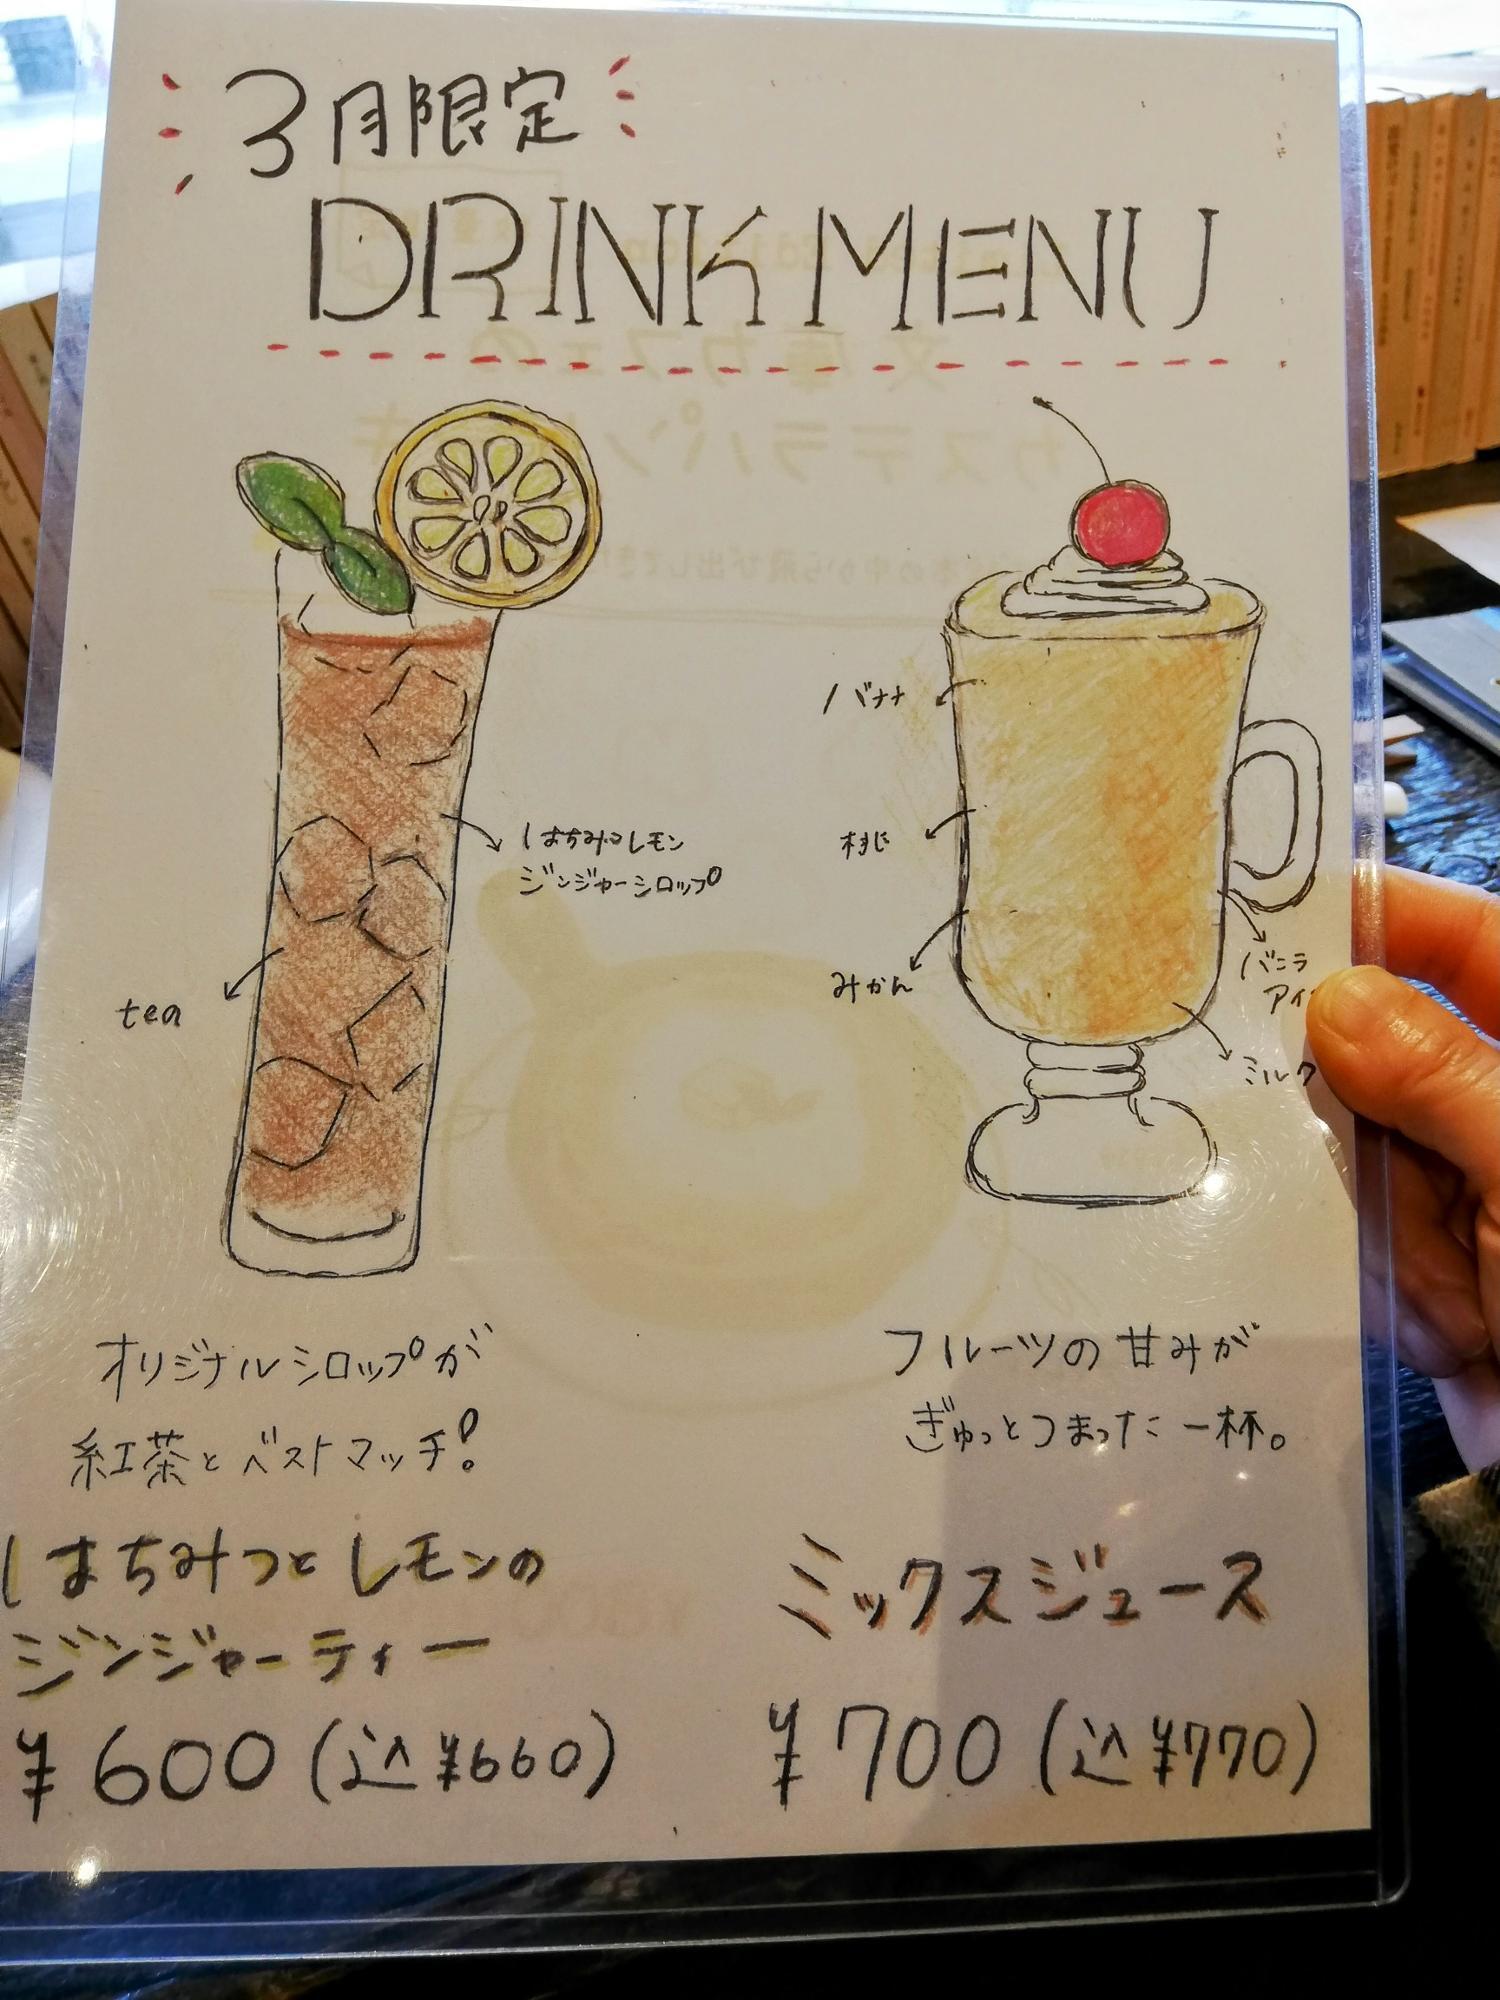 3月限定
DRINK MENU
バナナ
はちみつレモン
ジンジャーシロップ
桃
みかん
バニラ
tea
ミルク
オリジナルシロップが
紅茶とベストマッチ!
フルーツの甘みが
ぎゅっとつまった一杯。
はちみつとレモンの
ジンジャーティー
¥600(込¥660)
ミックスジュース
¥700(込¥770)